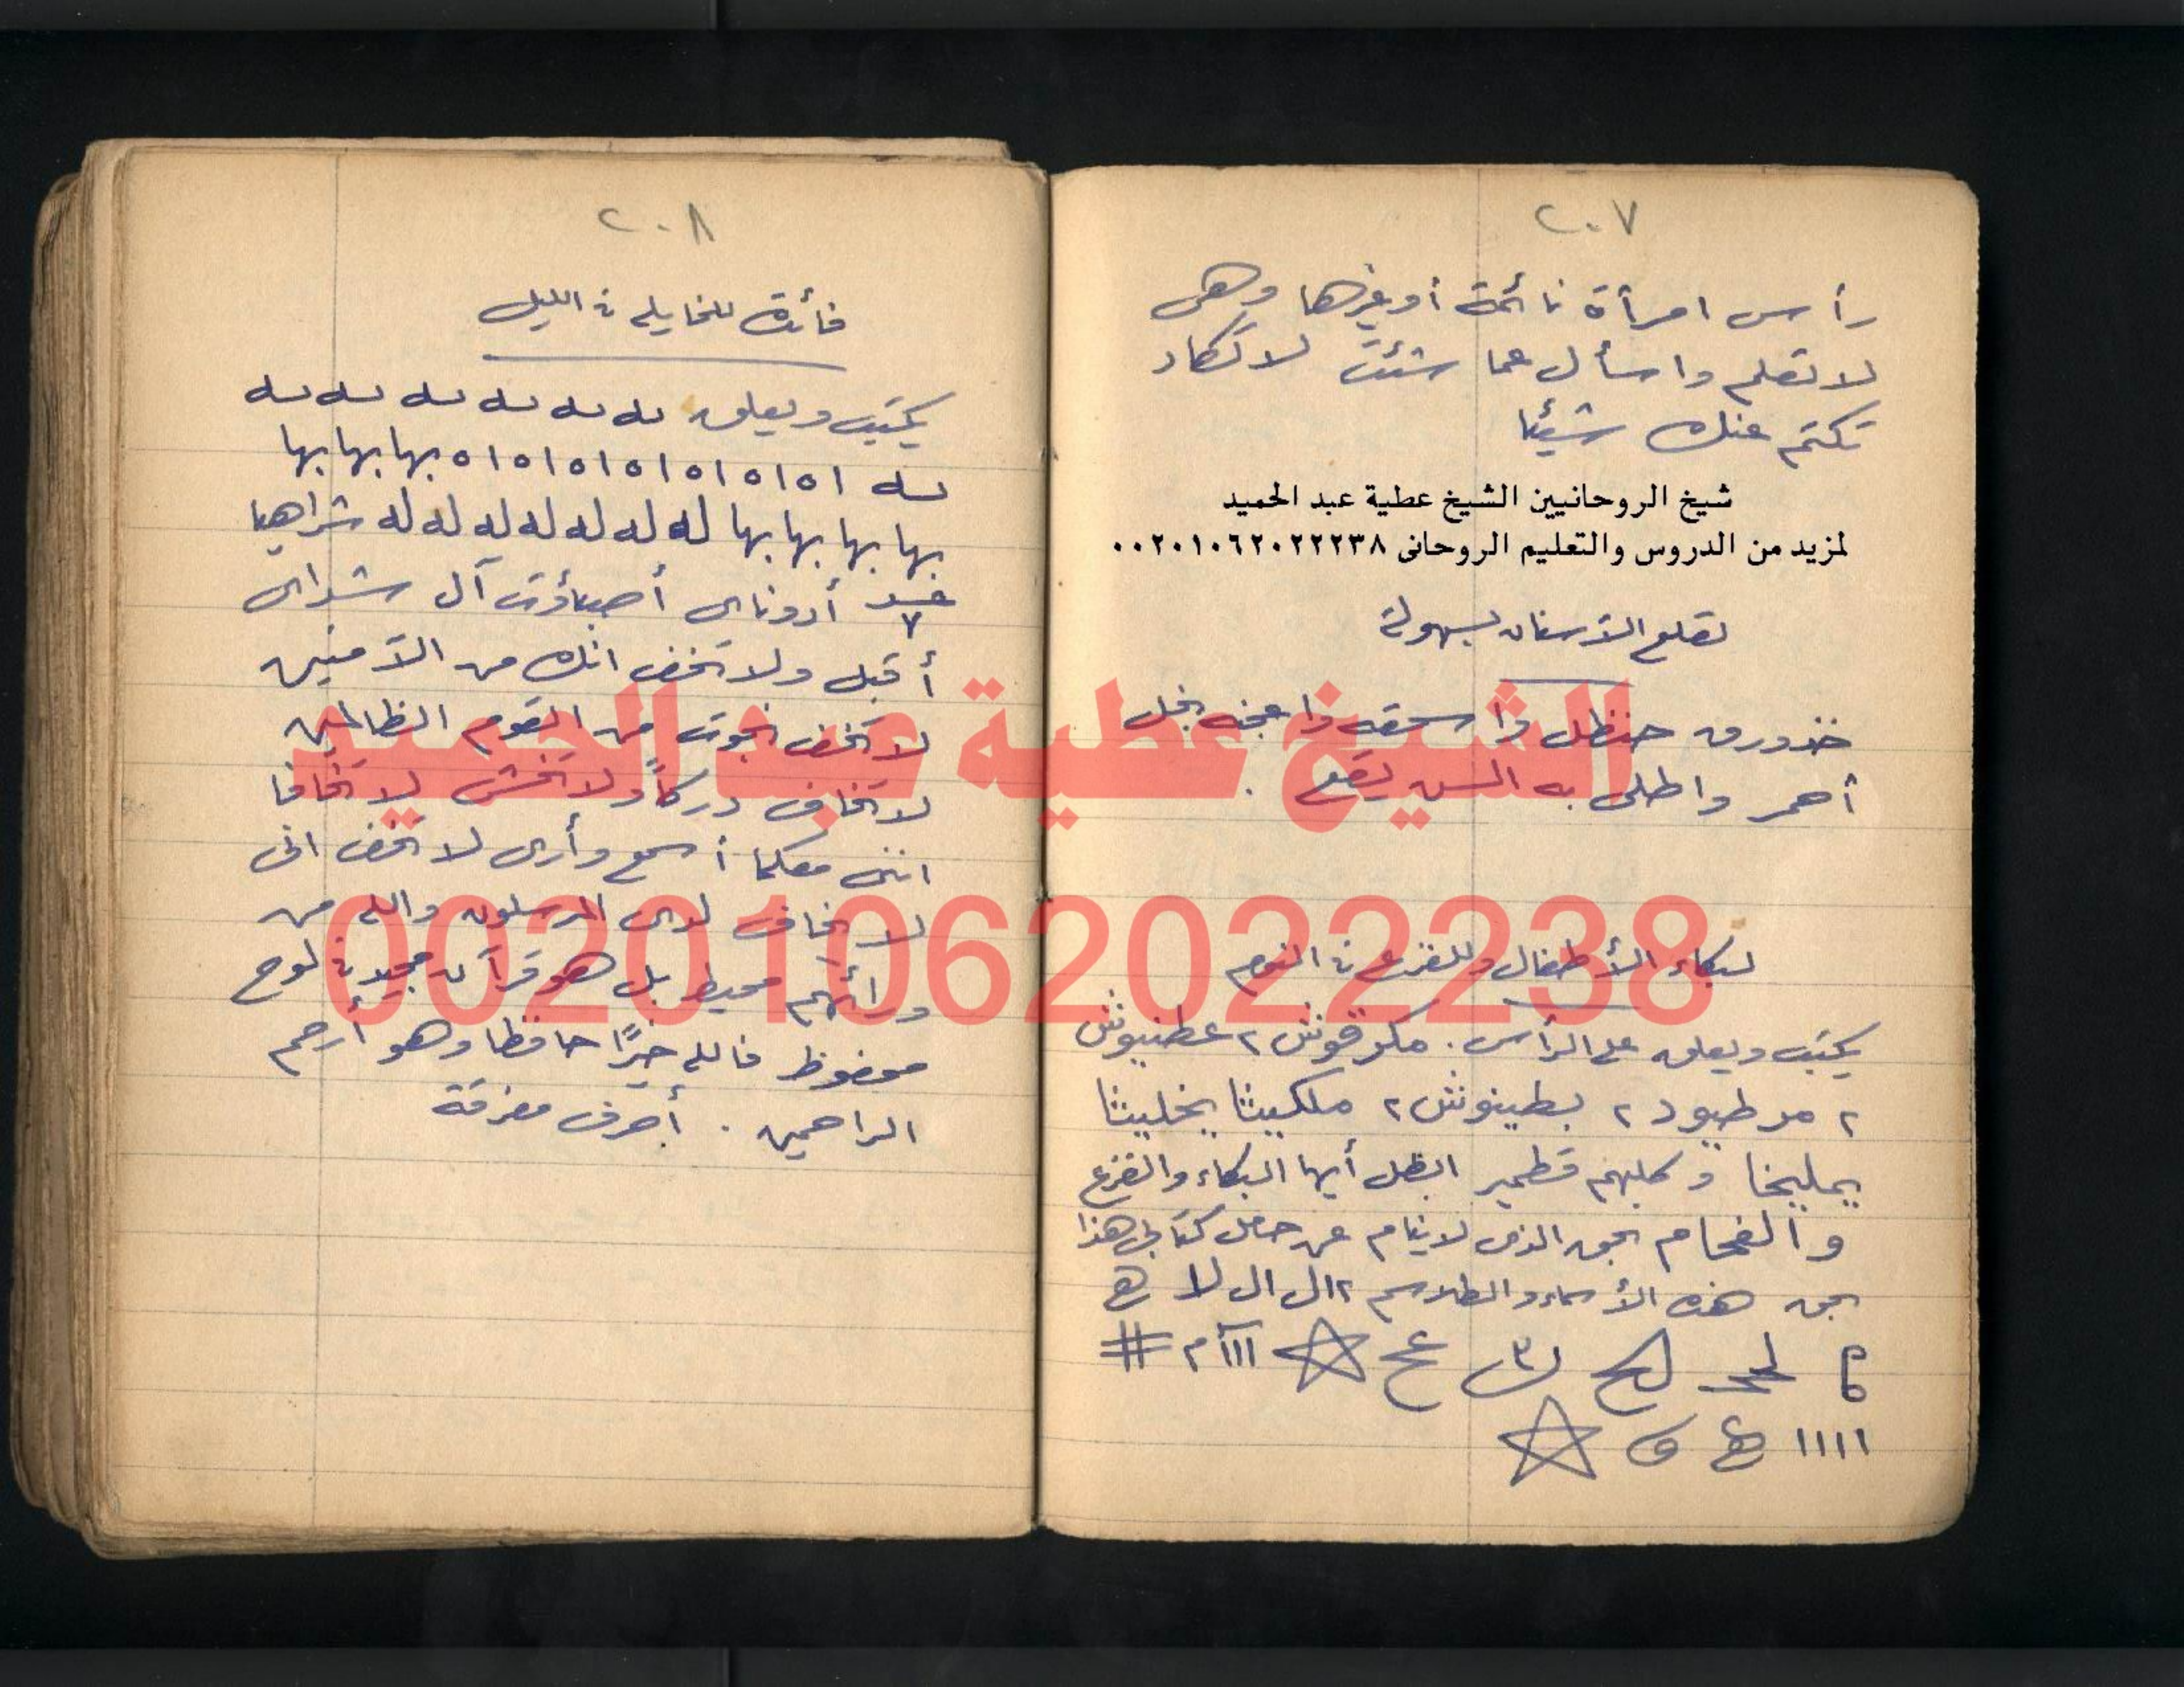 ٢٠٧
رأس امرأة نائمة أو غيرها وهى
لا تعلم واسأل عما شئت لا تكاد
تكتم عنك شيئا
شيخ الروحانيين الشيخ عطية عبد الحميد
لمزيد من الدروس والتعليم الروحانى ٠٠٢٠١٠٦٢٠٢٢٢٣٨
لقلع الأسنان بسهولة
خذ ورق حنظل واسحقه واعجنه بخل
أحمر واطلى به السن يقع .
لبكاء الأطفال وللفزع فى النوم
يكتب ويعلق على الرأس . مكرقوش ٢ عطنيوش
٢ مرطيود ٢ بطينوش ٢ ملكسيثا يخليثا
يمليخا وكلبهم قطمير ابطل أيها البكاء والفزع
والفحام بحق الذى لا ينام عن حامل كتابى هذا
بحق هذه الأسماء والطلاسم ٢ ال ال لا
#
١١١١
٢٠٨
فائدة للخايلة فى الليل
يكتب ويعلق له له له له له له
له ١٥١٥١٥١٥١٥١٥١٥ بها بها بها
بها بها بها بها له له له له له له له شراهيا
أدوناى أصباؤت آل شداى
أقبل ولا تخف انك من الآمنين
لا تخف نجوت من القوم الظالمين
لا تخاف دركاً ولا تخشى لا تخافا
اننى معكما أسمع وأرى لا تخف انى
لا يخاف لدى المرسلون والله من
ورائهم محيط بل هو قرآن مجيد فى لوح
محفوظ فالله خيرًا حافظا وهو أرحم
الراحمين . أحرف مفرقة
الشيخ عطية عبد الحميد
00201062022238